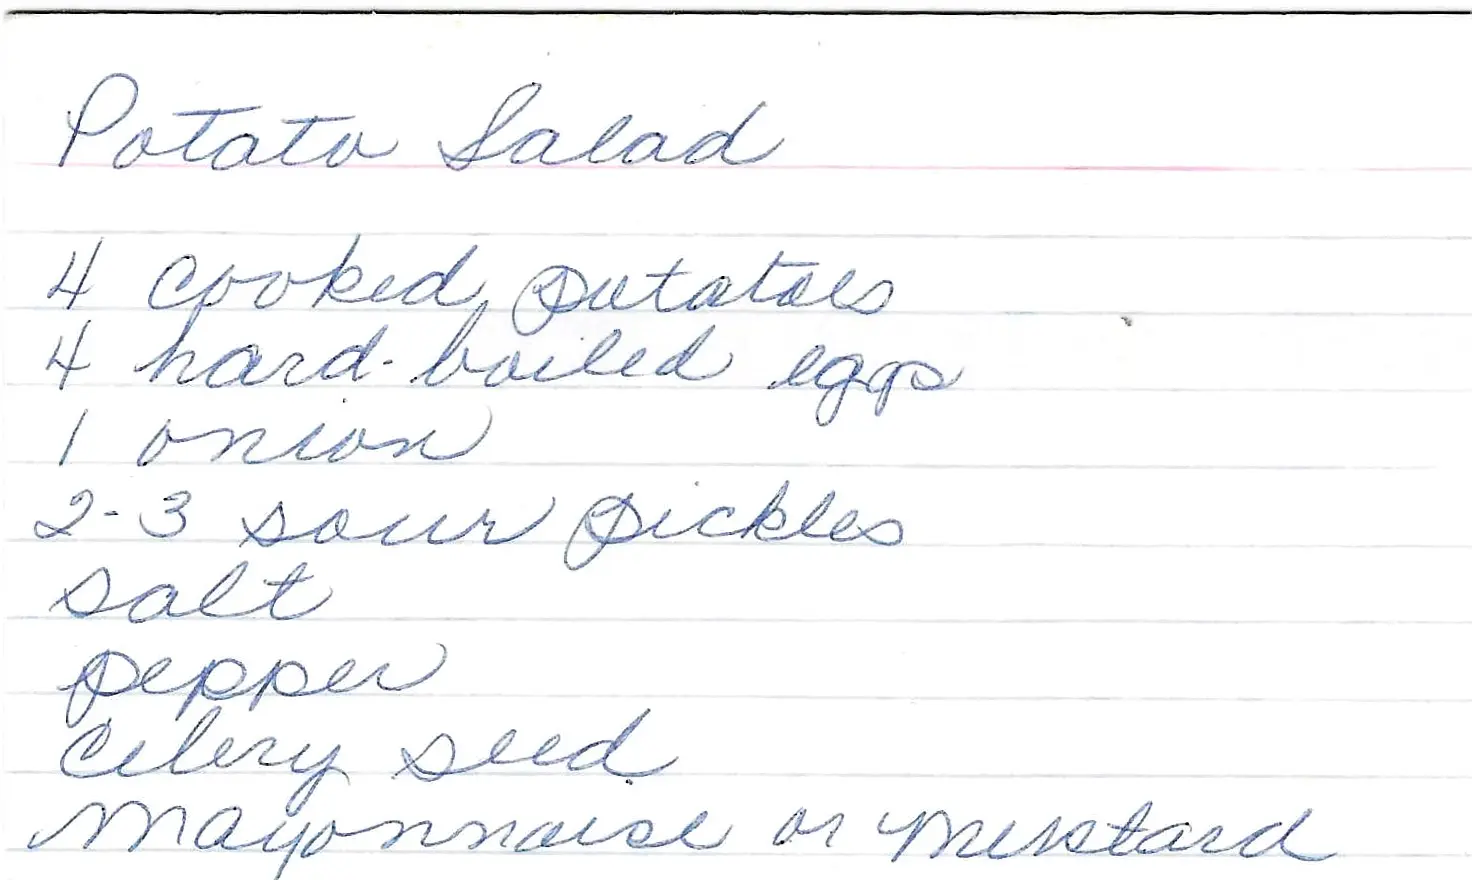 Potato Salad
4 cooked potatoes
4 hard-boiled eggs
1 onion
2-3 sour pickles
salt
pepper
celery seed
mayonnaise or mustard